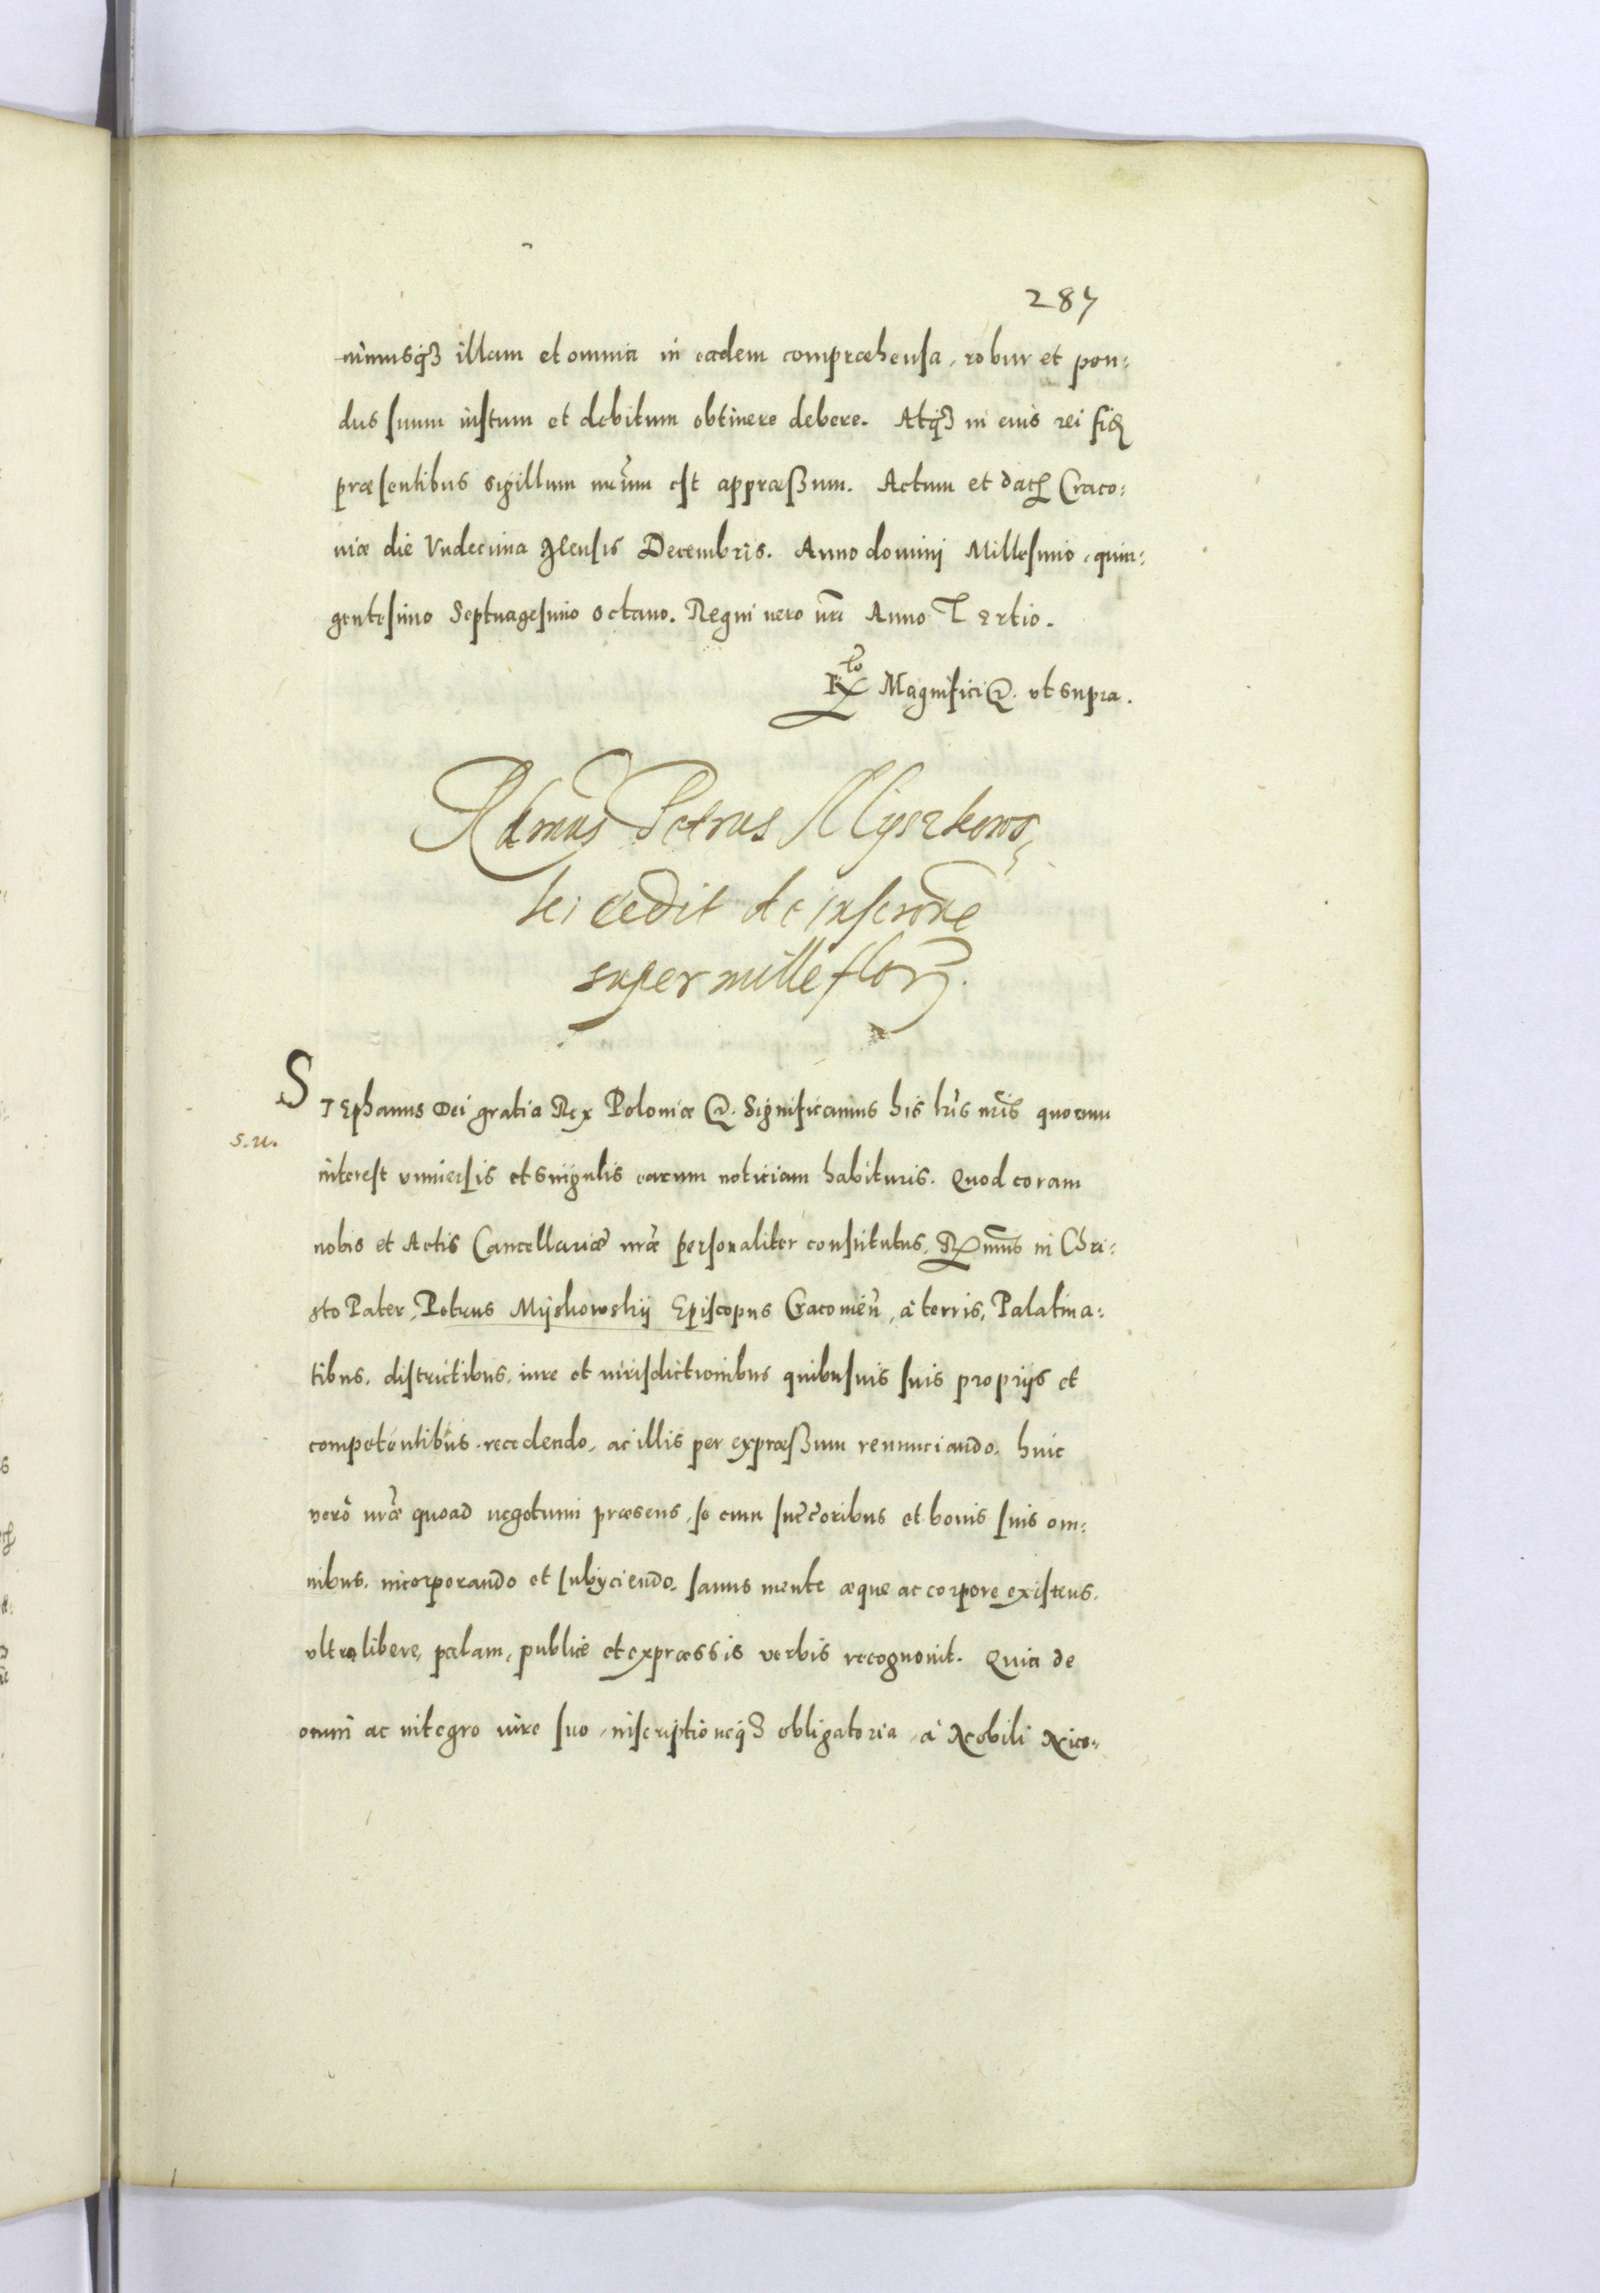 287
nimusq3 illam et omnia in eadem compræhensa, robur et pon:
dus suum iustum et debitum obtinere debere. Atq3 in eius rei fid
præsentibus sigillum nrum est appræßum. Actum et dat Craco:
niæ die Vndecima Mensis Decembris. Anno domini Millesimo, quin:
gentesimo Septuagesimo octauo. Regni uero nri Anno Tertio.
Rlo Magnifici &. vt supra.
Rdmus Petrus Myszkows
ki cedit de inscrone
super mille flor.
STEphanus Dei gratia Rex Poloniæ &. Significamus his lris nris quorum
s. u.
interest vniuersis et singulis earum noticiam habituris. Quod coram
nobis et Actis Cancellariæ nræ personaliter constitutus, Rmus in Chri:
sto Pater, Petrus Myskowskij Episcopus Cracouien, à terris, Palatina:
tibus, districtibus, iure et iurisdictionibus quibusuis suis proprijs et
competentibus recedendo, ac illis per expræßum renunciando, huic
verò nræ quoad negotium præsens, se cum succoribus et bonis suis om:
nibus, incorporando et subijciendo, sanus mente æque ac corpore existens,
vltro, libere, palam, publicè et expræssis verbis recognouit. Quia de
omni ac integro iure suo, inscriptioneq3 obligatoria, à Nobili Nico: